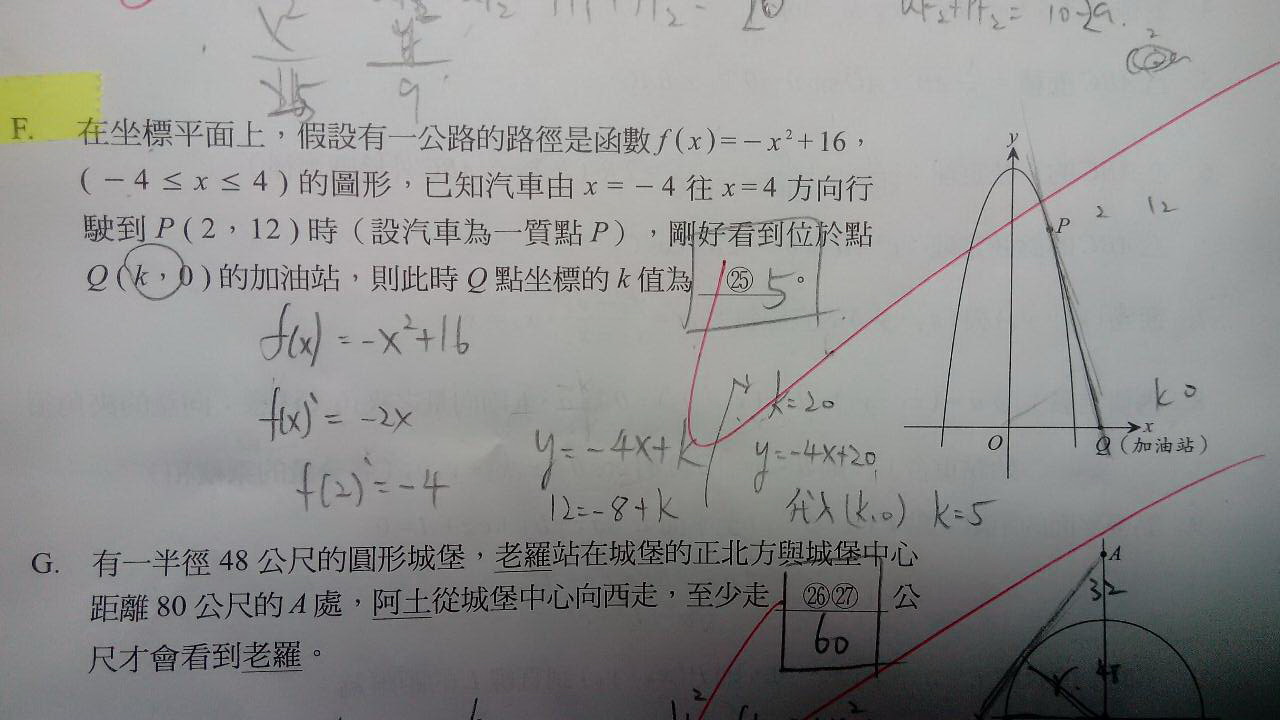 x²/25 y²/9
F. 在坐標平面上，假設有一公路的路徑是函數 f(x)=−x²+16，
(−4≤x≤4)的圖形，已知汽車由 x=−4 往 x=4 方向行
駛到 P(2，12)時（設汽車為一質點 P），剛好看到位於點
Q(k，0)的加油站，則此時 Q 點坐標的 k 值為 ㉕ 5。
y
P 2 12
k 0
O
x
Q（加油站）
f(x) = -x²+16
f(x)' = -2x
f(2)' = -4
y = -4x+k
12 = -8+k
k=20
y=-4x+20
代入(k,0) k=5
G. 有一半徑 48 公尺的圓形城堡，老羅站在城堡的正北方與城堡中心
距離 80 公尺的 A 處，阿土從城堡中心向西走，至少走 ㉖㉗ 公
60
尺才會看到老羅。
A
32
48
r